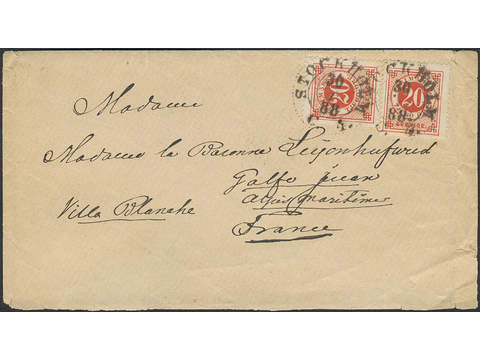 STOCKHOLM
30
88
20
20
Madame
Madame la Baronne Leijonhufvud
Golfe Juan
Villa Blanche
Alpes maritimes
France